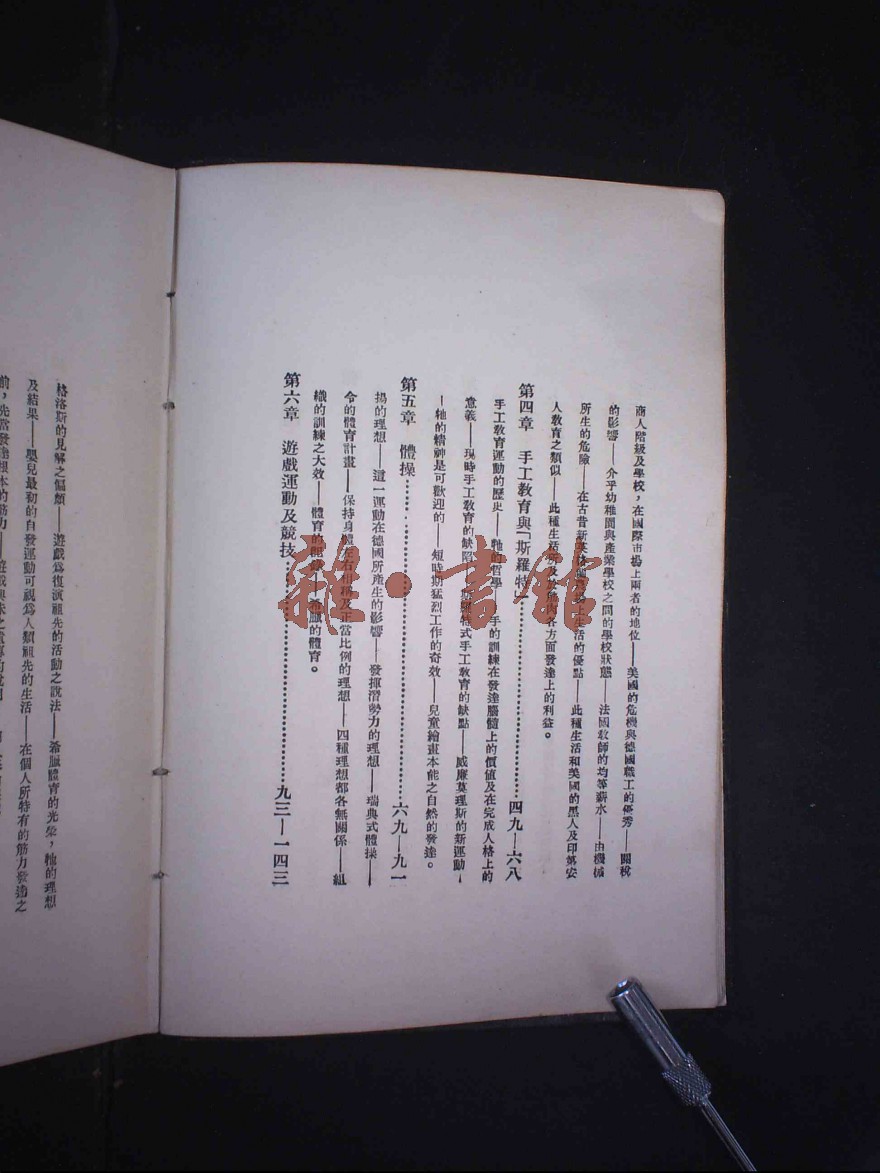 商人階級及學校，在國際市場上兩者的地位——美國的危機與德國職工的優秀——關稅
的影響——介乎幼稚園與產業學校之間的學校狀態——法國教師的均等薪水——由機械
所生的危險——在古昔新英格蘭 上生活的優點——此種生活和美國的黑人及印第安
人教育之類似——此種生活所及於 內各方面發達上的利益。
第四章　手工教育與「斯羅特」…………四九—六八
手工教育運動的歷史——牠的哲學——手的訓練在發達腦髓上的價值及在完成人格上的
意義——現時手工教育的缺陷 羅特式手工教育的缺點——威廉莫理斯的新運動，
——牠的精神是可歡迎的——短時期猛烈工作的奇效——兒童繪畫本能之自然的發達。
第五章　體操…………六九—九一
揚的理想——這一運動在德國所產生的影響——發揮潛勢力的理想——瑞典式體操——
令的體育計畫——保持身體左右相稱及正當比例的理想——四種理想都各無關係——組
織的訓練之大效——體育的 ——希臘的體育。
第六章　遊戲運動及競技…………九三—一四三
格洛斯的見解之偏頗——遊戲爲復演祖先的活動之說法——希臘體育的光榮，牠的理想
及結果——嬰兒最初的自發運動可視爲人類祖先的生活——在個人所特有的筋力發達之
前，先當發達根本的筋力——遊戲興味之
雜·書館